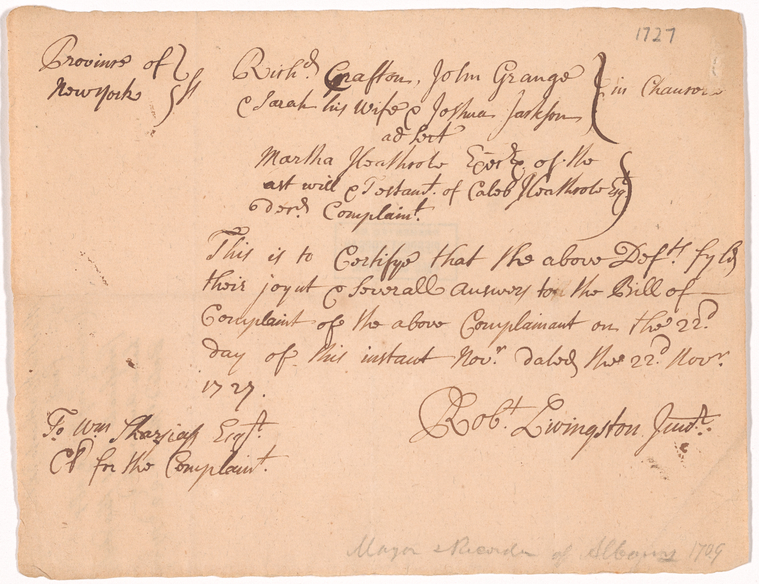 1727
Province of } ss
New York
Rich.d Grafton, John Grange
& Sarah his Wife & Joshua Jackson } in Chancer
ad sect
Martha Heathcote Exec.x of the
ast will & Testam.t of Caleb Heathcote Esq.r
dec.d Complain.t
This is to Certifye that the above Def.ts fyled
their joynt & severall answers to the Bill of
Complaint of the above Complainant on the 22.d
day of this instant Nov.r dated the 22.d Nov.r
1727.
Rob.t Livingston Jun.r
To Wm Sharpas Esq.r
for the Complain.t
Mayor & Recorder of Albany 1709